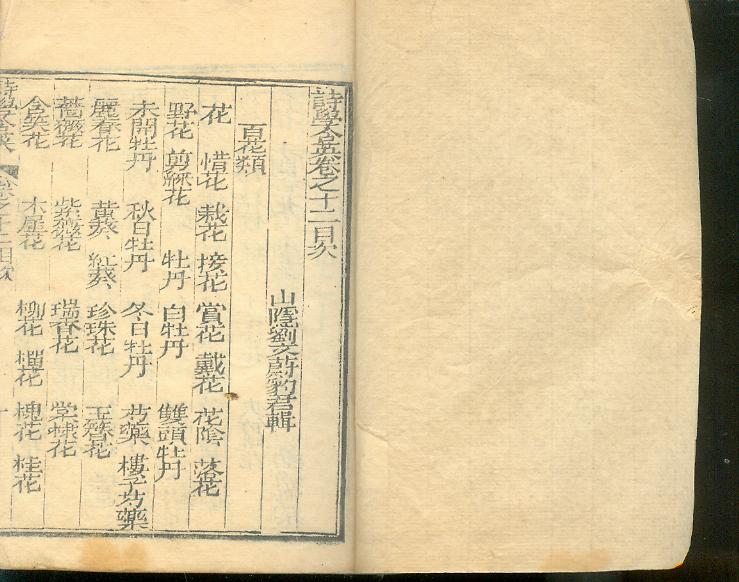 詩學含英卷之十二目次
山隂劉文蔚豹君輯
百花類
花 惜花 栽花 接花 賞花 戴花 花陰 落花
野花 剪綵花 牡丹 白牡丹 雙頭牡丹
未開牡丹 秋日牡丹 冬日牡丹 芍藥 樓子芍藥
麗春花 黃葵 紅葵 珍珠花 玉簪花
薔薇花 紫薇花 瑞香花 棠棣花
含笑花 木犀花 柳花 榴花 槐花 桂花
詩學含英 卷之十二目次